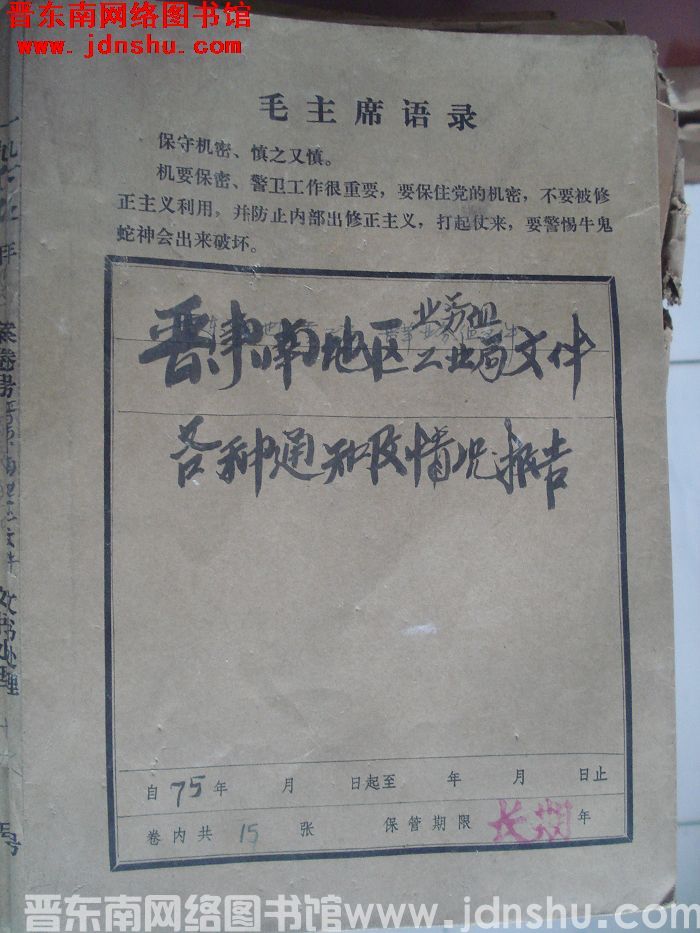 晋东南网络图书馆
www.jdnshu.com
毛主席语录
保守机密、慎之又慎。
机要保密、警卫工作很重要，要保住党的机密，不要被修
正主义利用，并防止内部出修正主义，打起仗来，要警惕牛鬼
蛇神会出来破坏。
业务组
晋东南地区工业局文件
各种通知及情况报告
自75年 月 日起至 年 月 日止
卷内共15张 保管期限长期年
案卷号
文书处理
号
晋东南网络图书馆www.jdnshu.com